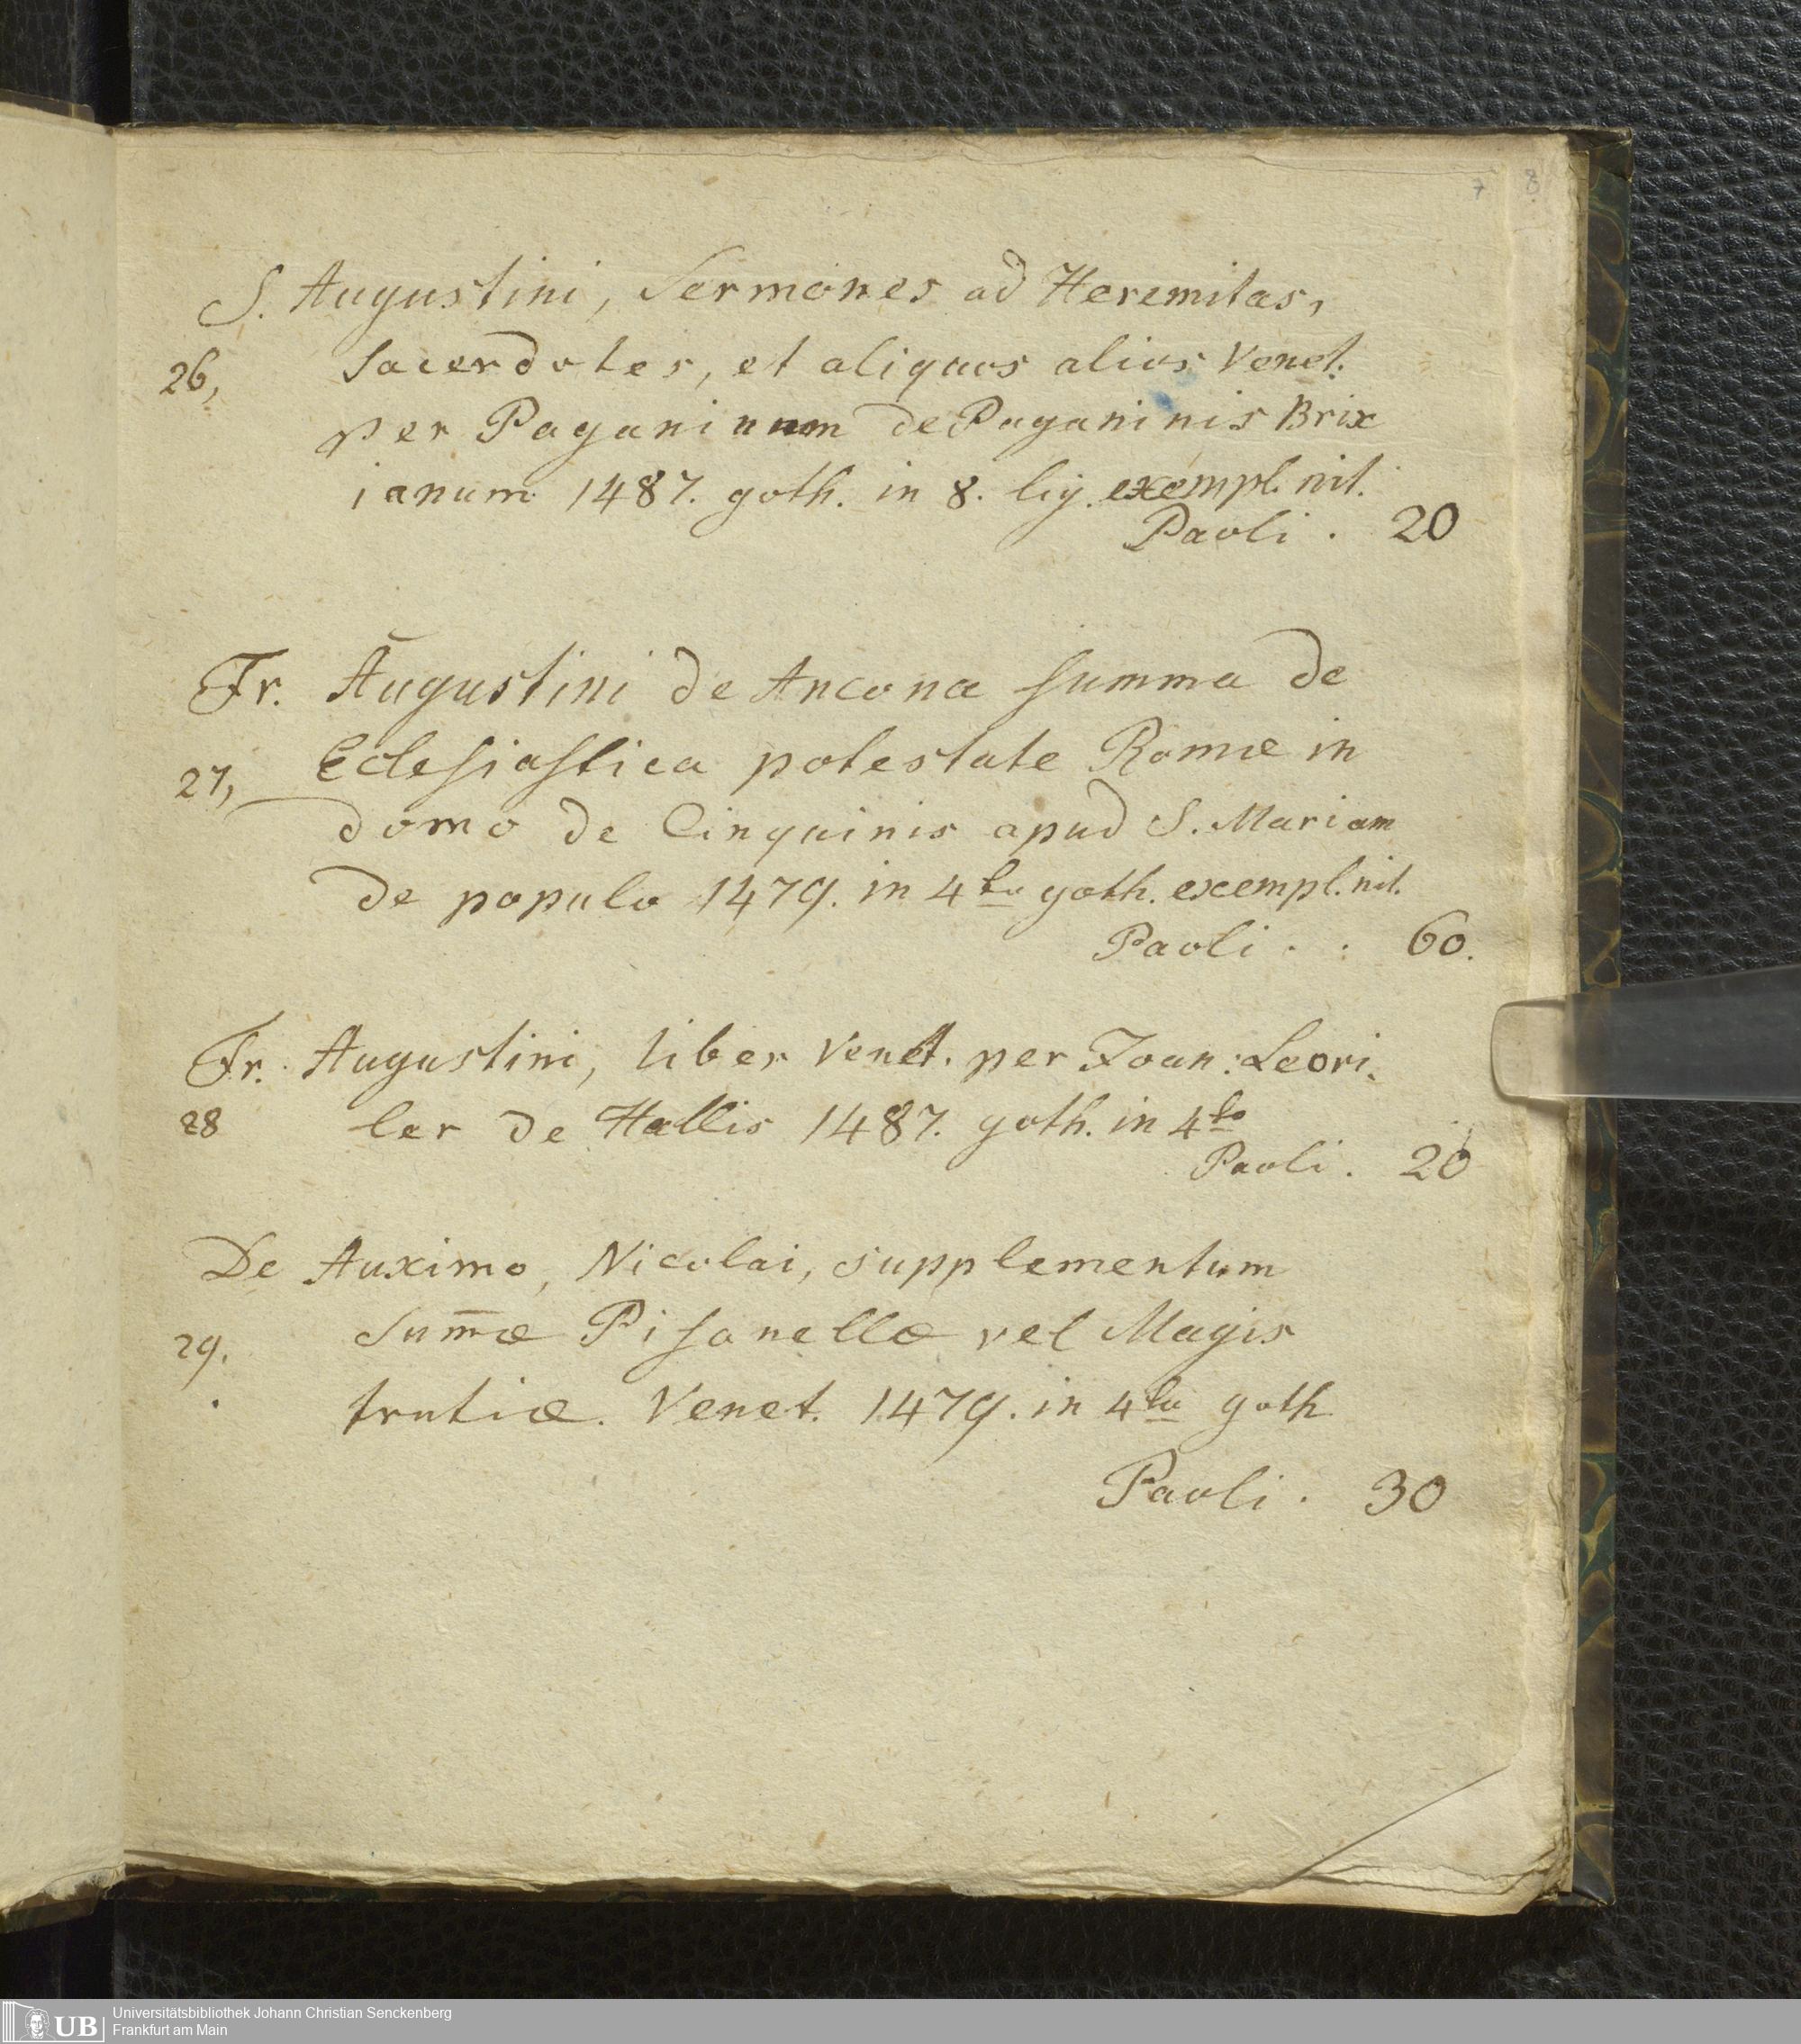 7 8
S. Augustini, Sermones ad Heremitas,
26, Sacerdotes, et aliquos alios Venet.
per Paganinum de Paganinis Brix
ianum 1487. goth. in 8. lig. exempl. nit.
Paoli . 20
Fr. Augustini de Ancona summa de
27, Eclesiastica potestate Romæ in
domo de Cinquinis apud S. Mariam
de populo 1479. in 4to goth. exempl. nit.
Paoli . . 60.
Fr. Augustini, liber Venet. per Joan: Leovi.
28 ler de Hallis 1487. goth. in 4to
Paoli . 20
De Auximo, Nicolai, supplementum
29. Sum̄æ Pisanellæ vel Magis
trutiæ. Venet. 1479. in 4to goth
Paoli . 30
UB Universitätsbibliothek Johann Christian Senckenberg
Frankfurt am Main